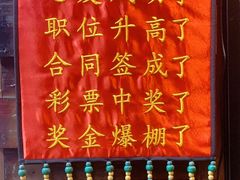 职位升高了
合同签成了
彩票中奖了
奖金爆棚了